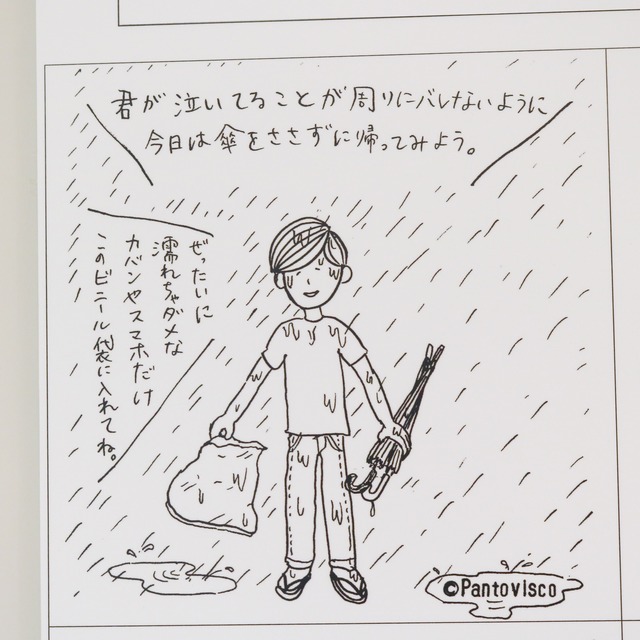 君が泣いてることが周りにバレないように
今日は傘をささずに帰ってみよう。
ぜったいに
濡れちゃダメな
カバンやスマホだけ
このビニール袋に入れてね。
©Pantovisco